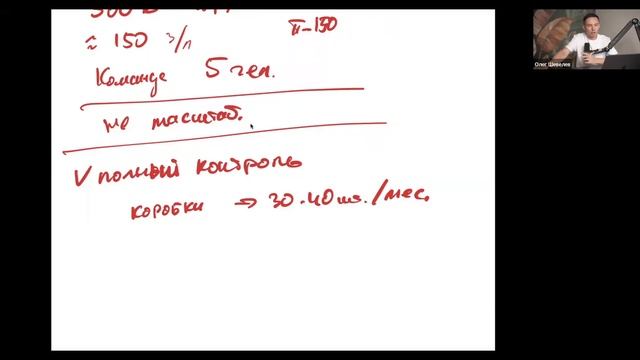 П-150
≈ 150 З/п
Команде 5 чел.
не масштаб.
V полный контроль
коробки → 30-40шт./мес.
Олег Шевелев